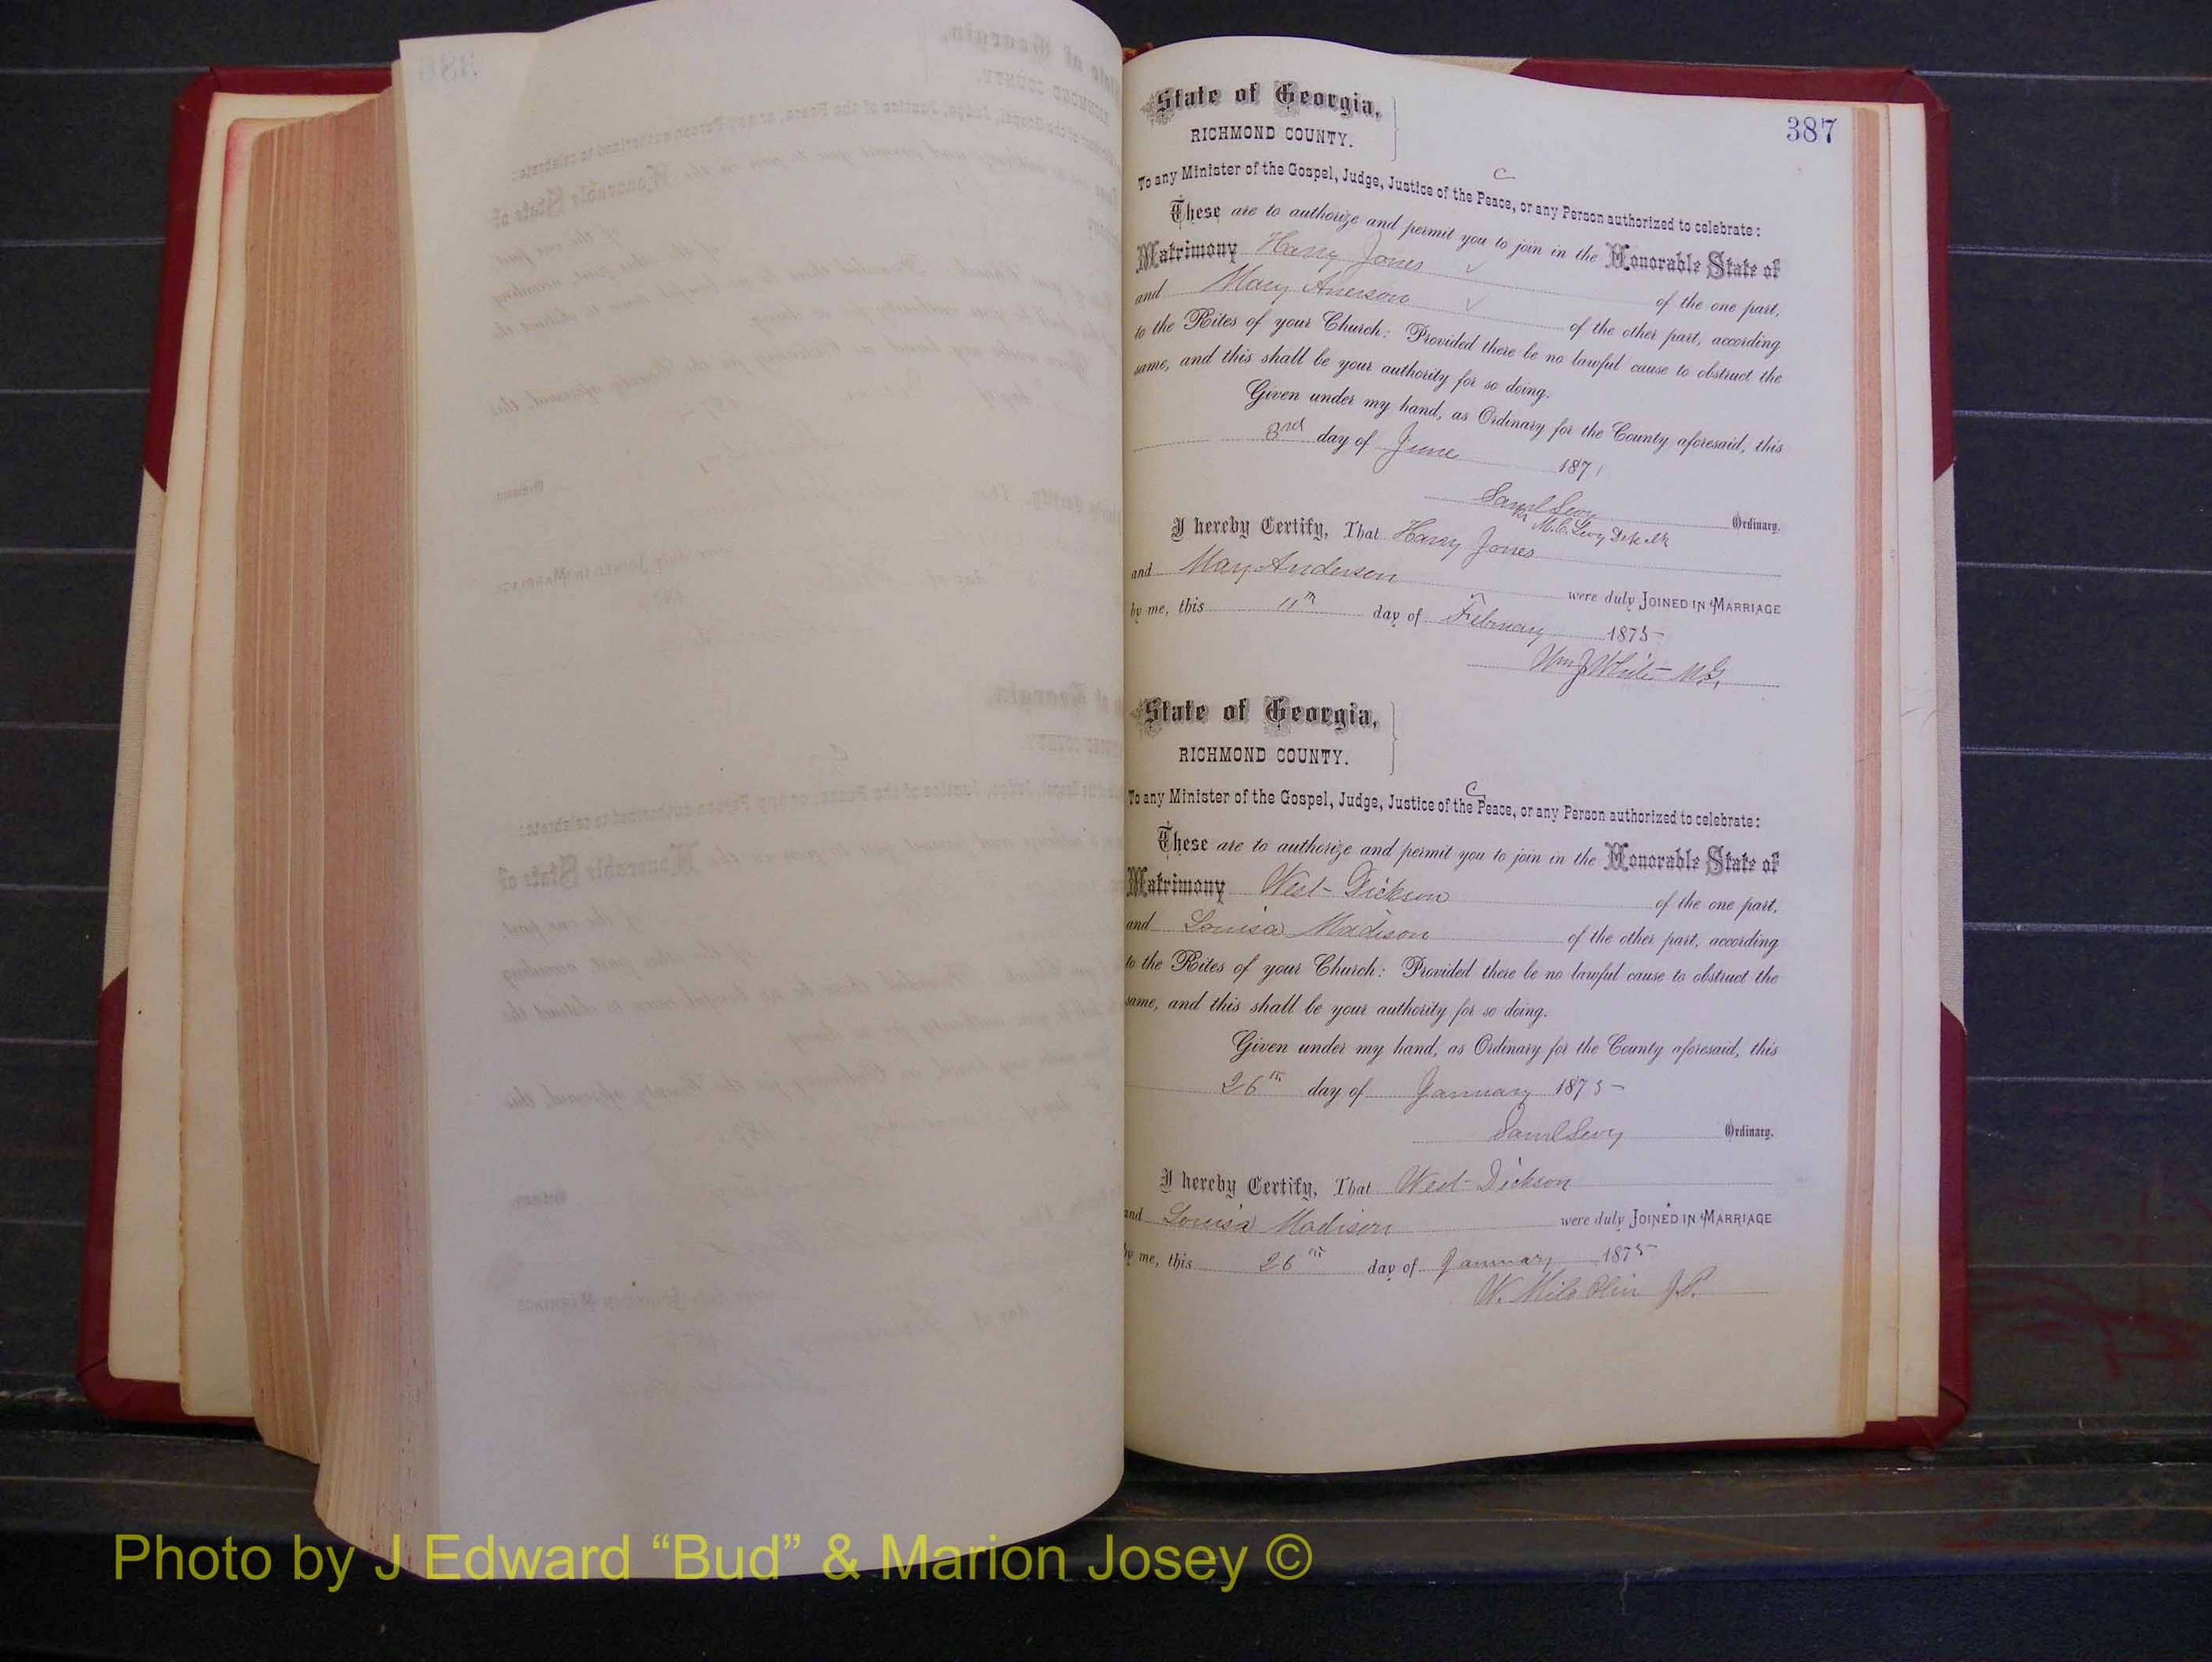 387
State of Georgia,
RICHMOND COUNTY.
C
To any Minister of the Gospel, Judge, Justice of the Peace, or any Person authorized to celebrate:
These are to authorize and permit you to join in the Honorable State of
Matrimony Harry Jones of the one part,
and Mary Anerson of the other part, according
to the Rites of your Church: Provided there be no lawful cause to obstruct the
same, and this shall be your authority for so doing.
Given under my hand, as Ordinary for the County aforesaid, this
3rd day of June 1871
Saml Levy Ordinary.
M.C. Levy
I hereby Certify, That Harry Jones
and Mary Anderson were duly JOINED IN MARRIAGE
by me, this 11th day of February 1875
Wm J White M.G.
State of Georgia,
RICHMOND COUNTY.
C
To any Minister of the Gospel, Judge, Justice of the Peace, or any Person authorized to celebrate:
These are to authorize and permit you to join in the Honorable State of
Matrimony West Dickson of the one part,
and Louisa Madison of the other part, according
to the Rites of your Church: Provided there be no lawful cause to obstruct the
same, and this shall be your authority for so doing.
Given under my hand, as Ordinary for the County aforesaid, this
26th day of January 1875
Saml Levy Ordinary.
I hereby Certify, That West Dickson
and Louisa Madison were duly JOINED IN MARRIAGE
by me, this 26th day of January 1875
W. Milo Olin J.P.
Photo by J Edward “Bud” & Marion Josey ©